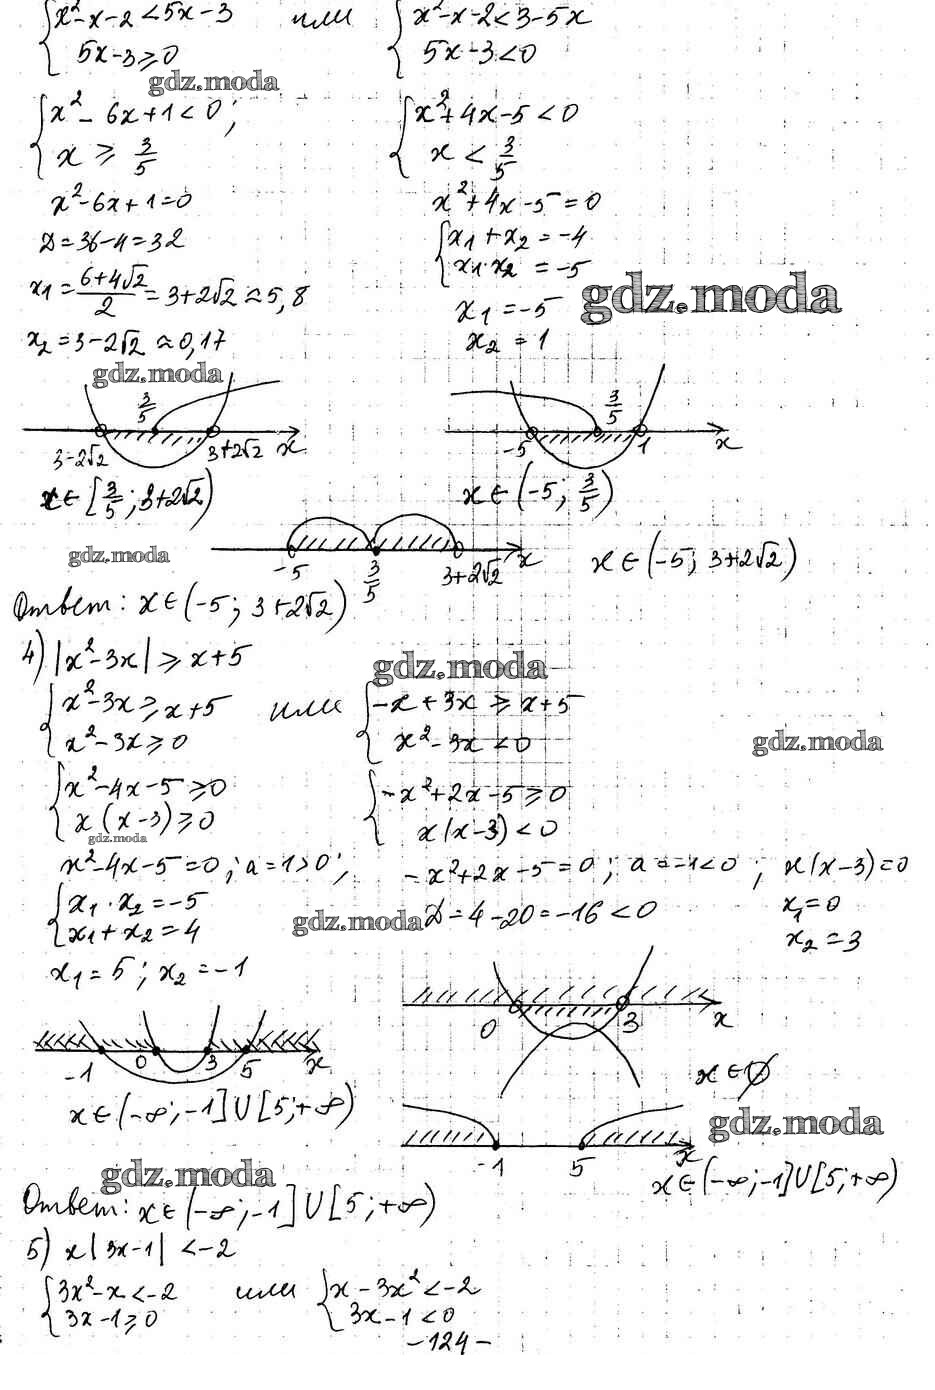 {x²-x-2<5x-3 или {x²-x-2<3-5x
5x-3≥0 5x-3<0
gdz.moda
{x²-6x+1<0; {x²+4x-5<0
x≥3/5 x<3/5
x²-6x+1=0 x²+4x-5=0
D=36-4=32 {x₁+x₂=-4
x₁·x₂=-5
x₁=(6+4√2)/2=3+2√2≈5,8 x₁=-5
gdz.moda
x₂=3-2√2≈0,17 x₂=1
gdz.moda
3/5 3/5
3-2√2 3+2√2 x -5 1 x
x∈[3/5; 3+2√2) x∈(-5; 3/5)
gdz.moda
-5 3/5 3+2√2 x x∈(-5; 3+2√2)
Ответ: x∈(-5; 3+2√2)
4) |x²-3x|≥x+5
gdz.moda
{x²-3x≥x+5 или {-x+3x≥x+5
x²-3x≥0 x²-3x<0
gdz.moda
{x²-4x-5≥0 {-x²+2x-5≥0
x(x-3)≥0 x(x-3)<0
gdz.moda
x²-4x-5=0; a=1>0; -x²+2x-5=0; a=-1<0; x(x-3)=0
{x₁·x₂=-5 D=4-20=-16<0 x₁=0
x₁+x₂=4 x₂=3
gdz.moda
x₁=5; x₂=-1
0 3 x
-1 0 3 5 x x∈∅
x∈(-∞;-1]U[5;+∞)
gdz.moda
-1 5 x
x∈(-∞;-1]U[5;+∞)
gdz.moda
Ответ: x∈(-∞;-1]U[5;+∞)
5) x|3x-1|<-2
{3x²-x<-2 или {x-3x²<-2
3x-1≥0 3x-1<0
-124-